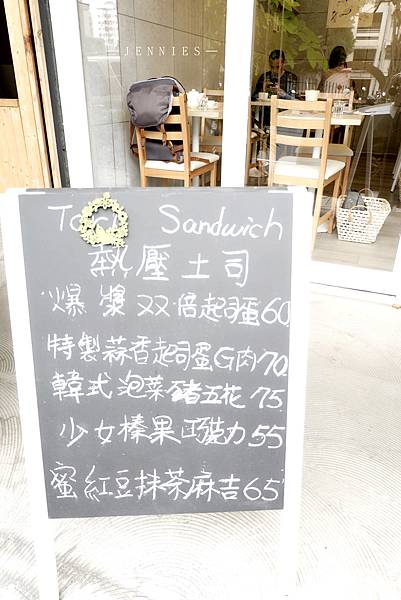 —JENNIES—
Sandwich
熱壓土司
爆漿双倍起司蛋60
特製蒜香起司蛋G肉70
韓式泡菜豬五花75
少女榛果巧克力55
蜜紅豆抹茶麻吉65